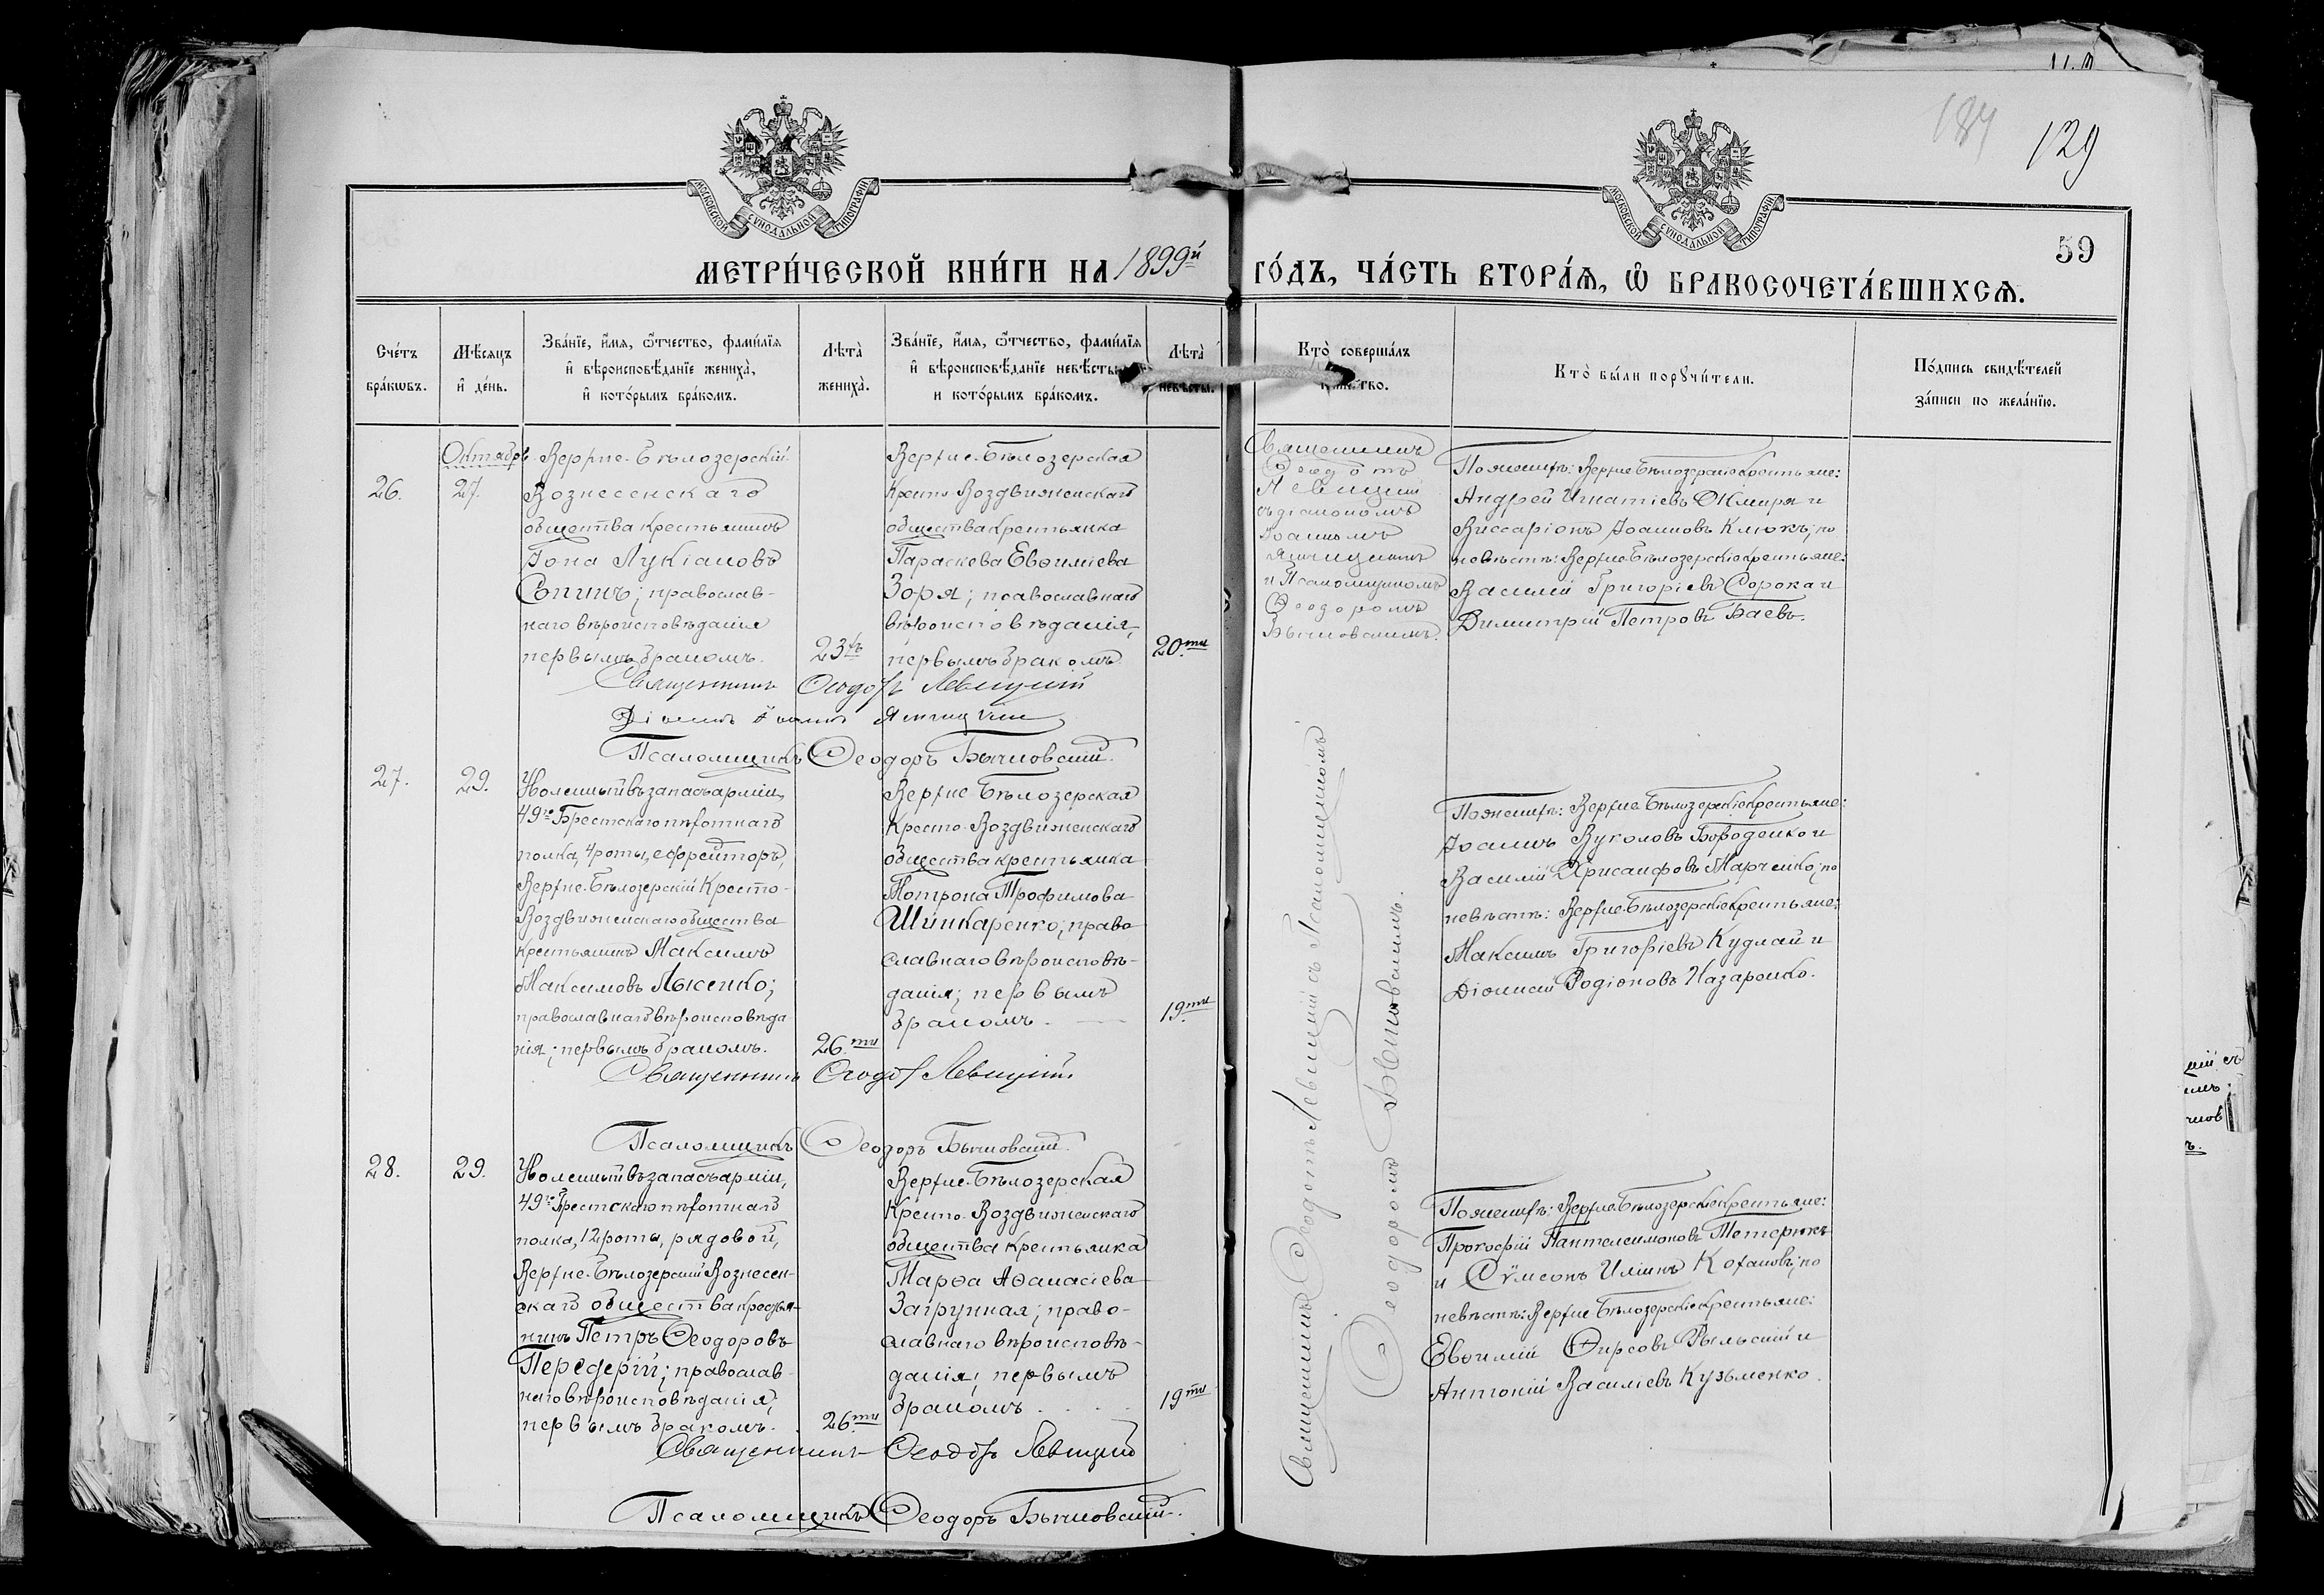 129
59
МОСКОВСКОЙ СѴНОДАЛЬНОЙ ТИПОГРАФІИ
МОСКОВСКОЙ СѴНОДАЛЬНОЙ ТИПОГРАФІИ
МЕТРИ́ЧЕСКОЙ КНИ́ГИ НА 1899й ГО́ДЪ, ЧА́СТЬ ВТОРА́Ѧ, Ѽ БРАКОСОЧЕТА́ВШИХСѦ.
Сче́тъ бра́кѡвъ.
Мѣ́сяцъ и҆ де́нь.
Зва́нїе, и҆́мя, ѻ҆́тчество, фами́лїя
и҆ вѣроисповѣ́данїе жениха̀,
и҆ кото́рымъ бра́комъ.
Лѣта̀ жениха̀.
Зва́нїе, и҆́мя, ѻ҆́тчество, фами́лїя
и҆ вѣроисповѣ́данїе невѣ́сты,
и кото́рымъ бра́комъ.
Лѣта̀ невѣ́сты.
Кто̀ соверша́лъ
Кто̀ бы́ли порꙋчи́тели.
По́дпись свидѣ́телей
за́писи по жела́нїю.
26.
Октябрь
27.
Верхне-Бѣлозерскій
Вознесенскаго
общества крестьянинъ
Іона Лукіановъ
Сопинъ; православ-
наго вѣроисповѣданія
первымъ бракомъ.
23хъ
Верхне-Бѣлозерская
Кресто-Воздвиженскаго
общества крестьянка
Параскева Евѳиміева
Зоря; православнаго
вѣроисповѣданія,
первымъ бракомъ
20ти
Священникъ
Ѳеодотъ
Левицкій
съ діакономъ
Іоанномъ
и Псаломщикомъ
Ѳеодоромъ
По женихѣ: Верхне-Бѣлозерскіе крестьяне:
Андрей Игнатіевъ Жмиря и
Виссаріонъ Іоанновъ Клюкъ; по
невѣстѣ: Верхне-Бѣлозерскіе крестьяне:
Василій Григоріевъ Сорока и
Димитрій Петровъ Баевъ.
Священникъ Ѳеодотъ Левицкій
Діаконъ Іоаннъ
Псаломщикъ Ѳеодоръ
27.
29.
Уволенный въ запасъ арміи,
49го Брестскаго пѣхотнаго
полка, 4 роты, ефрейторъ,
Верхне-Бѣлозерскій Кресто-
Воздвиженскаго общества
крестьянинъ Максимъ
Максимовъ Лысенко;
православнаго вѣроисповѣда
нія; первымъ бракомъ.
26ти
Верхне-Бѣлозерская
Кресто-Воздвиженскаго
общества крестьянка
Мотрона Трофимова
Шинкаренко; право
славнаго вѣроисповѣ-
данія; первымъ
бракомъ.
19ти
По женихѣ: Верхне-Бѣлозерскіе крестьяне:
Іоаннъ Вуколовъ Бороденко и
Василій Хрисанфовъ Марченко; по
невѣстѣ: Верхне-Бѣлозерскіе крестьяне:
Максимъ Григоріевъ Кудлай и
Діонисій Родіоновъ Назаренко.
Священникъ Ѳеодотъ Левицкій.
Псаломщикъ Ѳеодоръ
28.
29.
Уволенный въ запасъ арміи,
49го Брестскаго пѣхотнаго
полка, 12 роты, рядовой,
Верхне-Бѣлозерскій Вознесен-
скаго общества крестья-
нинъ Петръ Ѳеодоровъ
Передерій; православ
наго вѣроисповѣданія,
первымъ бракомъ.
26ти
Верхне-Бѣлозерская
Кресто-Воздвиженскаго
общества крестьянка
Марѳа Аѳанасіева
Загрунная; право-
славнаго вѣроисповѣ-
данія; первымъ
бракомъ
19ти
По женихѣ: Верхне-Бѣлозерскіе крестьяне:
Прокофій Пантелеимоновъ Тетерюкъ
и Сѵмеонъ Иліинъ Кохановъ; по
невѣстѣ: Верхне-Бѣлозерскіе крестьяне:
Евѳимій Ѳирсовъ Рыльскій и
Антоній Василіевъ Кузьменко.
Священникъ Ѳеодотъ Левицкій
Псаломщикъ Ѳеодоръ
Священникъ Ѳеодотъ Левицкій съ Псаломщикомъ
Ѳеодоромъ